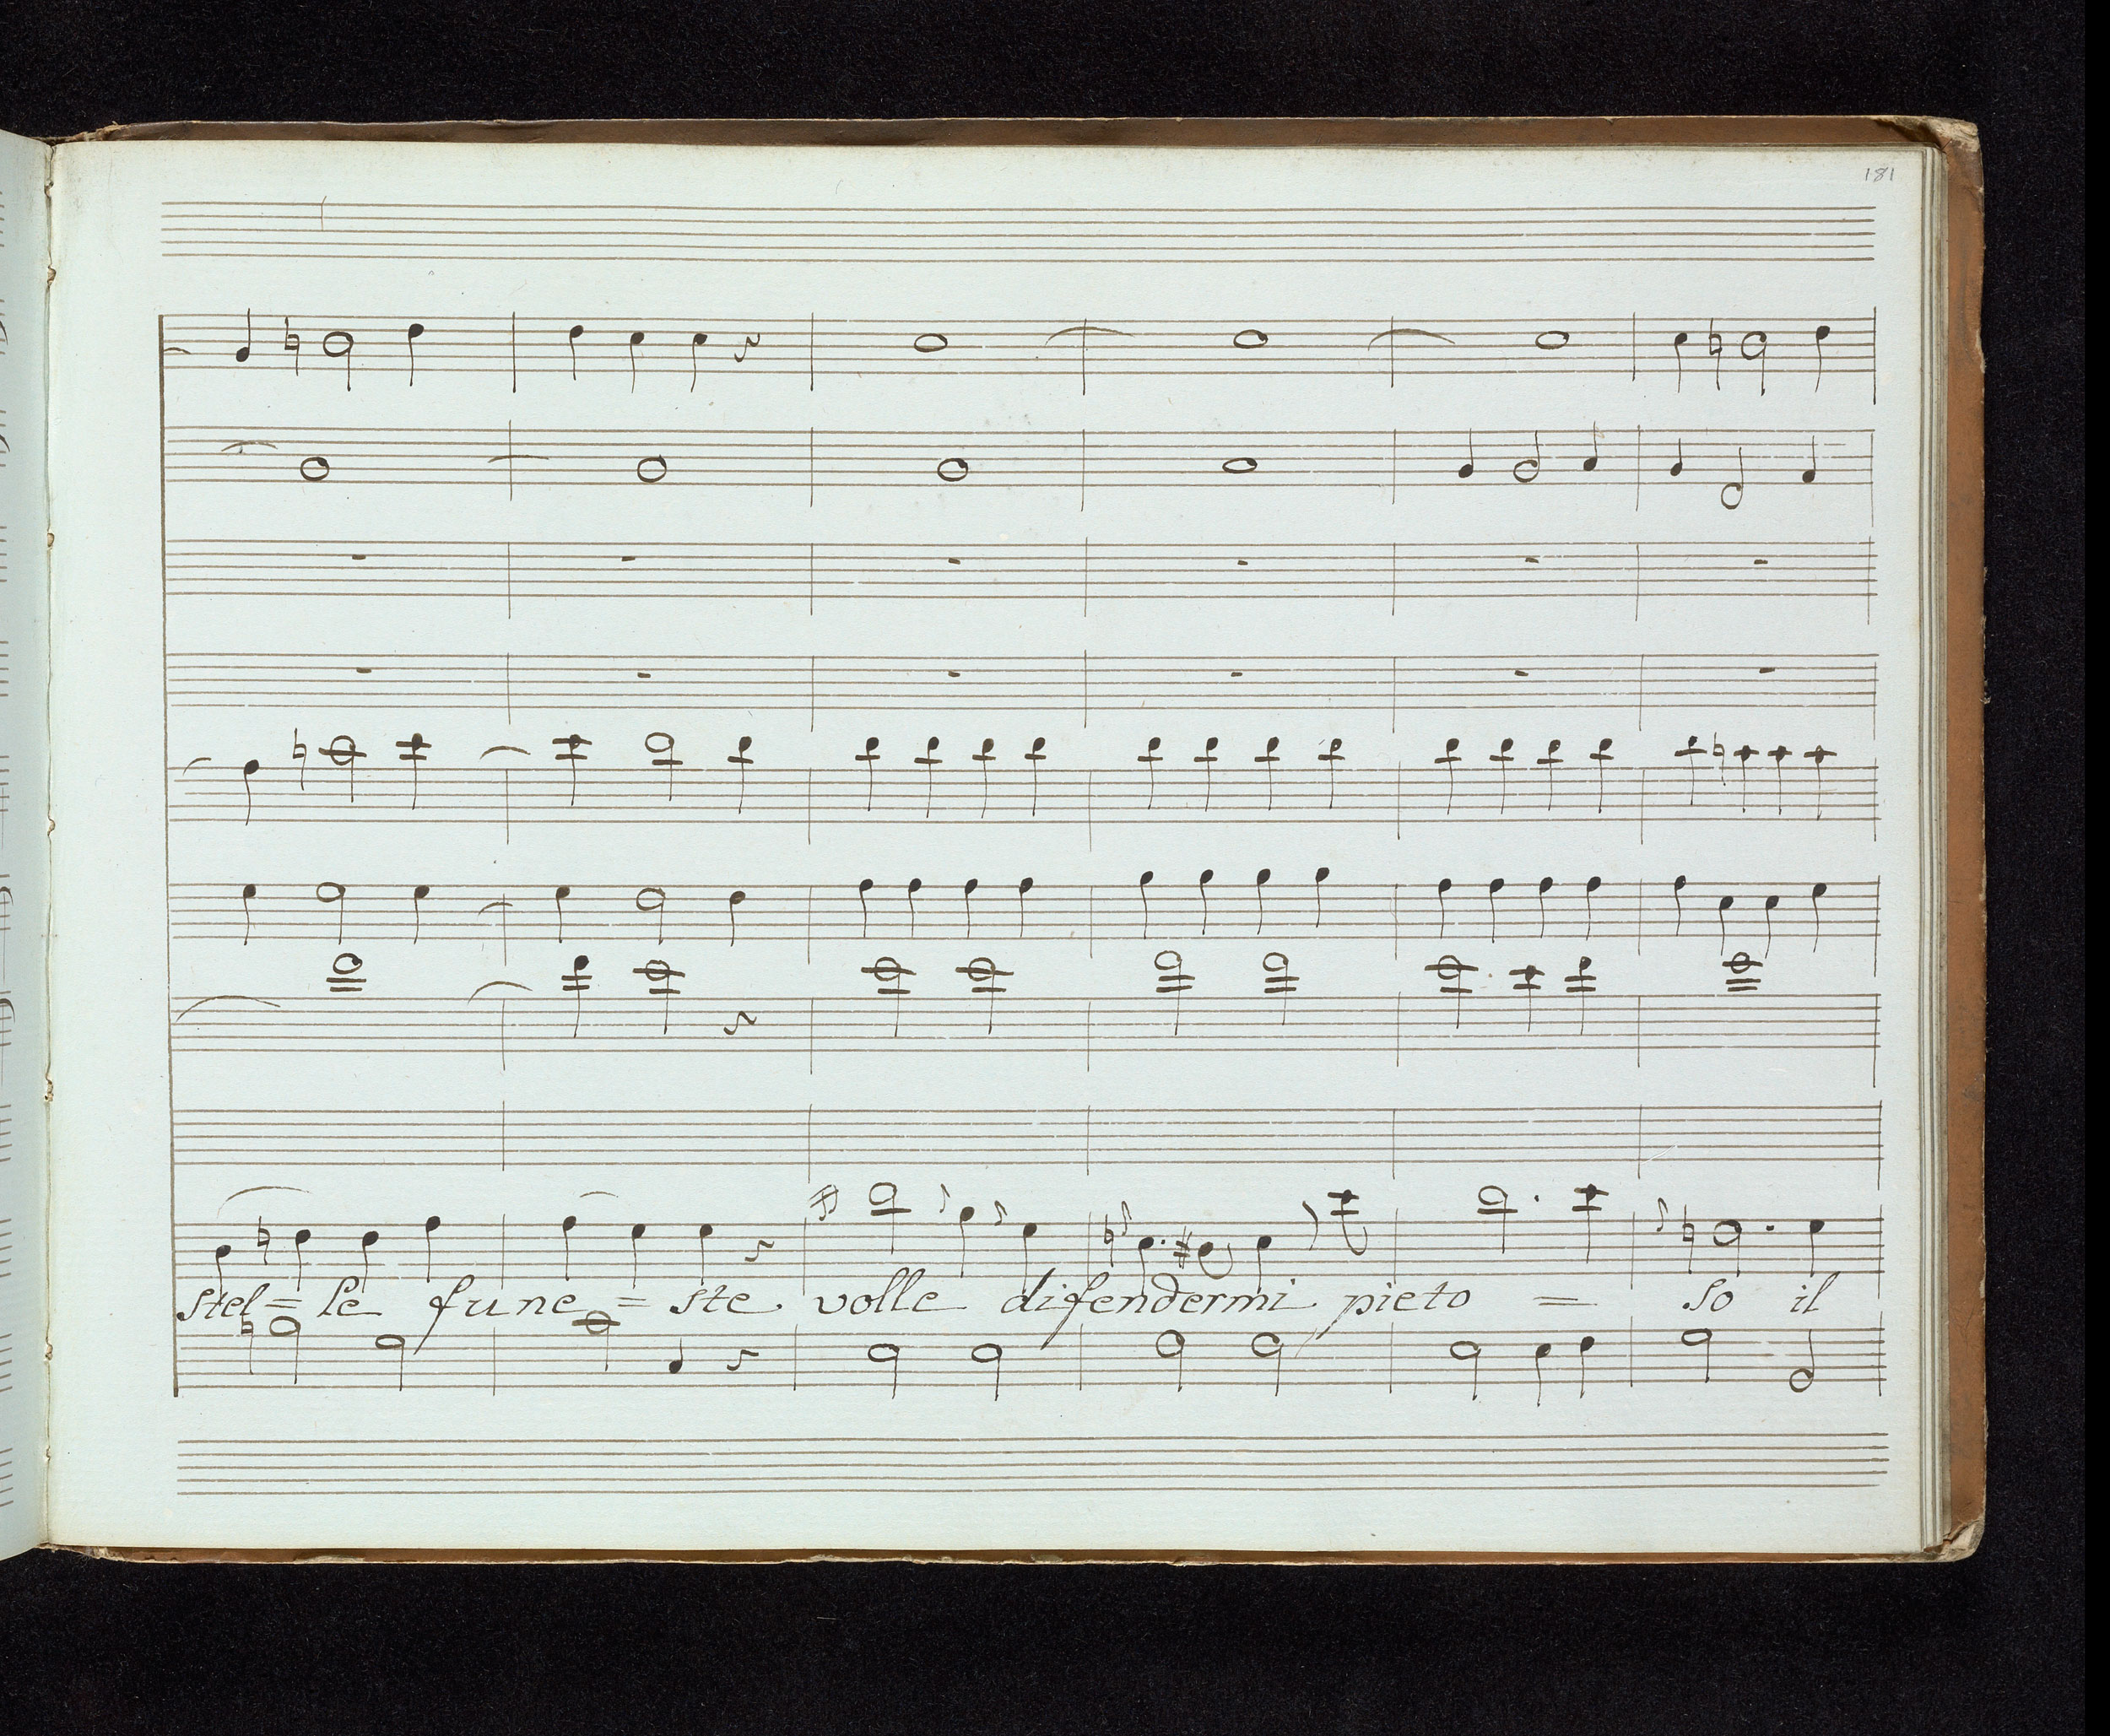 181
stel = le fune = ste volle difendermi pieto = so il